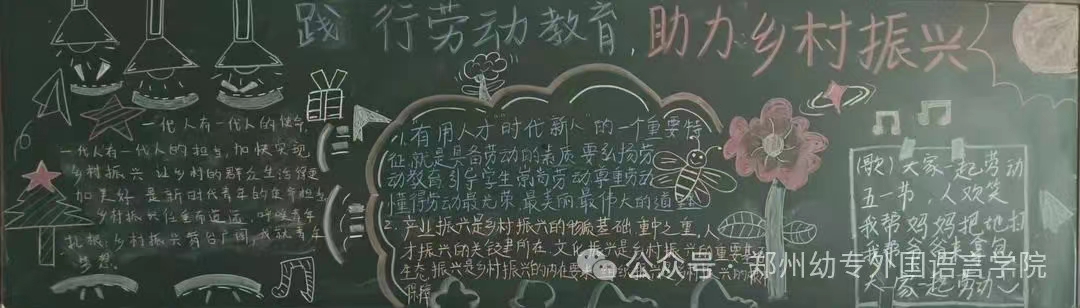 践行劳动教育,助力乡村振兴
一代人有一代人的使命,
一代人有一代人的担当,加快实现
乡村振兴 让乡村的群众生活得更
加美好 是新时代青年的使命担当
乡村振兴任重而道远,呼唤青年
扎根,乡村振兴舞台广阔,成就青年
梦想
1.有用人才"时代新人"的一个重要特
征就是具备劳动的素质要弘扬劳
动教育引导学生崇尚劳动尊重劳动
懂得劳动最光荣、最美丽最伟大的道理
2.产业振兴是乡村振兴的物质基础,重中之重,人
才振兴的关键所在,文化振兴是乡村振兴的重要基
生态振兴是乡村振兴的内在要求
保障
(歌)大家一起劳动
五一节,人欢笑
我帮妈妈把地扫
我帮爸爸来拿包
大家一起劳动~
公众号·郑州幼专外国语言学院